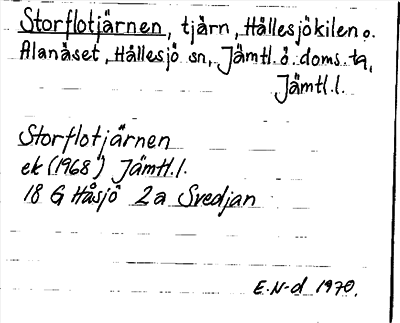 Storflotjärnen, tjärn, Hållesjökilen o.
Alanäset, Hällesjö sn, Jämtl. ö. doms. ta,
Jämtl. l.
Storflotjärnen
ek (1968) Jämtl. l.
18 G Håsjö 2a Svedjan
E. N-d 1970.